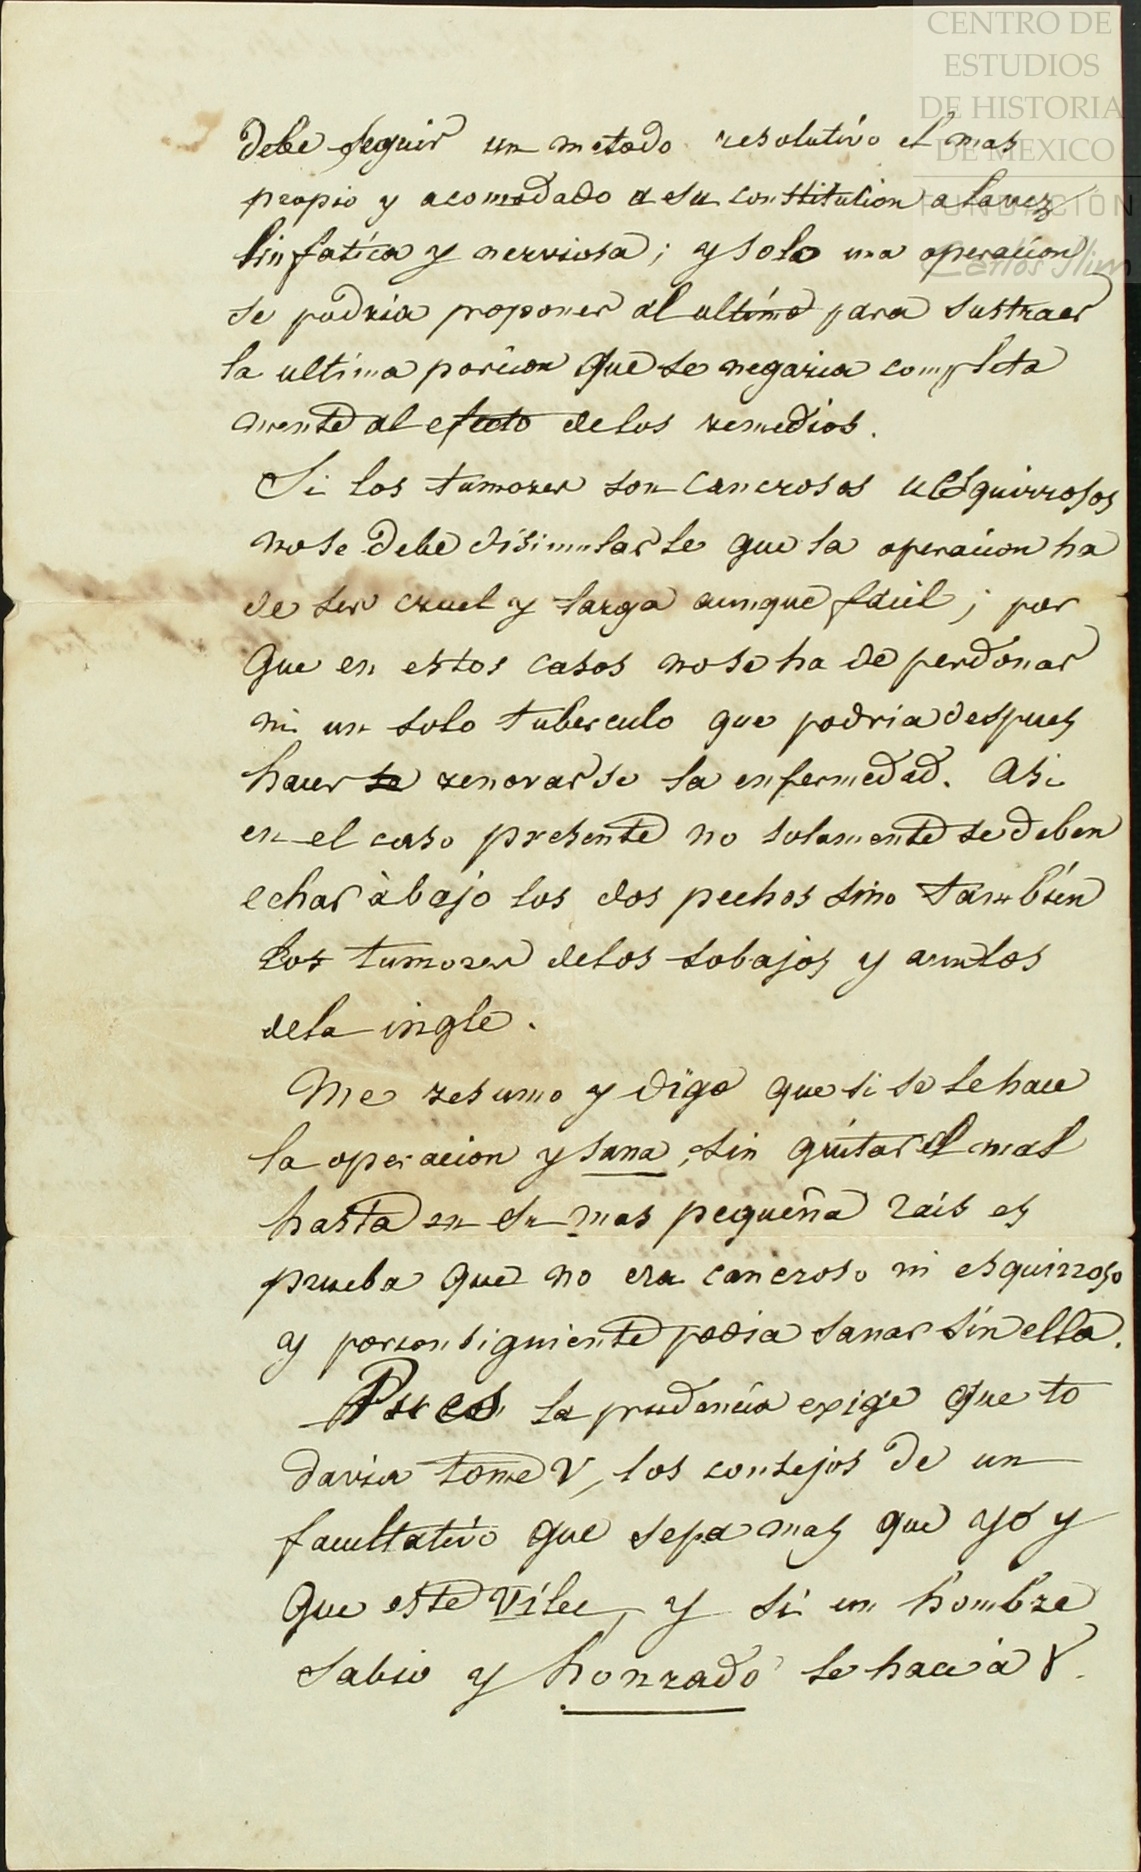 CENTRO DE
ESTUDIOS
DE HISTORIA
DE MEXICO
FUNDACIÓN
Carlos Slim
debe seguir un metodo resolutivo el mas
propio y acomodado a su constitucion a la vez
linfatica y nerviosa; y solo una operacion
se podria proponer al ultimo para sustraer
la ultima porcion que se negaria completa
mente al efecto de los remedios.
Si los tumores son cancrosos u esquirrosos
no se debe disimularse que la operacion ha
de ser cruel y larga aunque facil; por
que en estos casos no se ha de perdonar
ni un solo tuberculo que podria despues
hacer se renovarse la enfermedad. Asi
en el caso presente no solamente se deben
echar àbajo los dos pechos sino tambien
los tumores de los sobajos y aun los
de la ingle.
Me resumo y digo que si se le hace
la operacion y sana, sin quitar el mal
hasta en su mas pequeña rais es
prueba que no era cancroso ni esquirroso
y por consiguiente podia sanar sin ella.
Pues la prudencia exige que to
davia tome V, los consejos de un
facultativo que sepa mas que yo y
que este, y si un hombre
sabio y honrado le hacia à V.